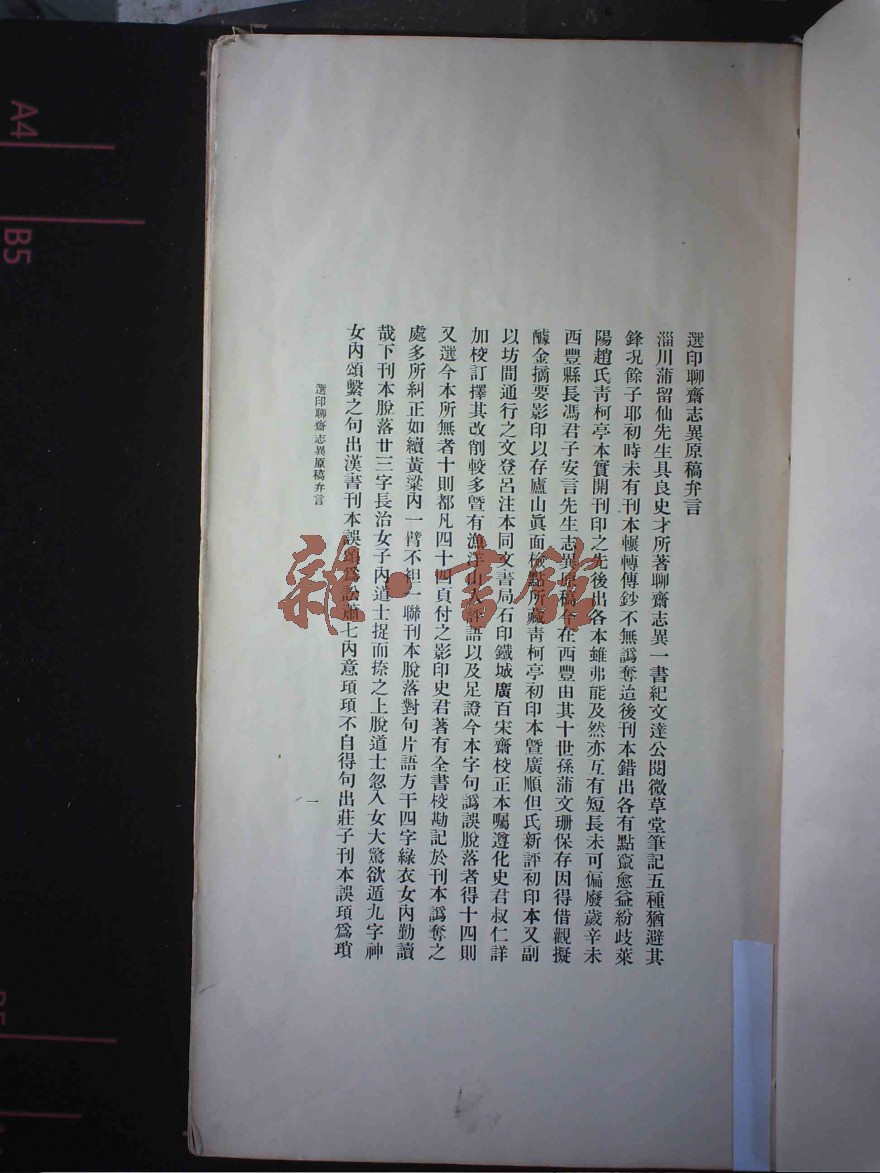 選印聊齋志異原稿弁言
淄川蒲留仙先生具良史才所著聊齋志異一書紀文達公閱微草堂筆記五種猶避其
鋒況餘子耶初時未有刊本輾轉傳鈔不無譌奪迨後刊本錯出各有點竄愈益紛歧萊
陽趙氏靑柯亭本實開刊印之先後出各本雖弗能及然亦互有短長未可偏廢歲辛未
西豐縣長馮君子安言先生志異原稿今在西豐由其十世孫蒲文珊保存因得借觀擬
醵金摘要影印以存廬山眞面檢點所藏靑柯亭初印本曁廣順但氏新評初印本又副
以坊間通行之文登呂注本同文書局石印鐵城廣百宋齋校正本囑遵化史君叔仁詳
加校訂擇其改削較多曁有漁洋山人評語以及足證今本字句譌誤脫落者得十四則
又選今本所無者十則都凡四十四頁付之影印史君著有全書校勘記於刊本譌奪之
處多所糾正如續黃粱內一臂不袒一聯刊本脫落對句片語方干四字綠衣女內勤讀
哉下刊本脫落廿三字長治女子內道士捉而捺之上脫道士忽入女大驚欲遁九字神
女內頌繫之句出漢書刊本誤頌爲訟蕭七內意頊頊不自得句出莊子刊本誤頊爲瑣
選印聊齋志異原稿弁言
一
雜·書館
A4
B5